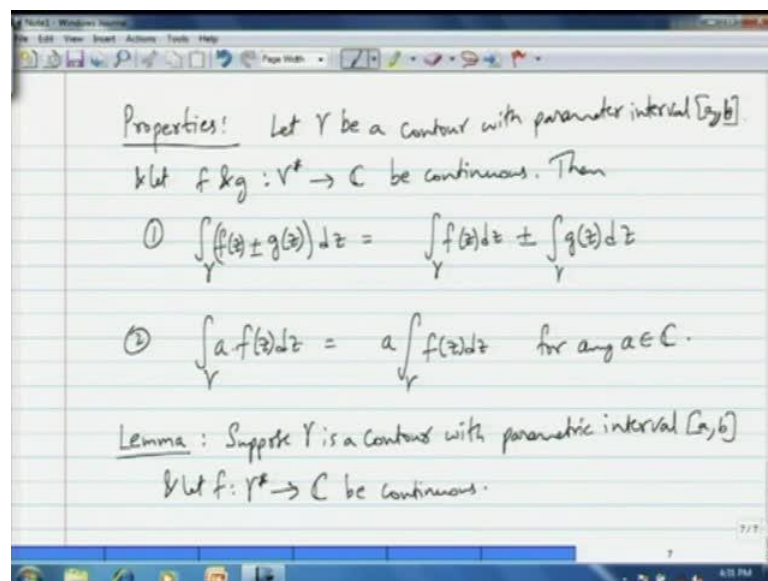 Note1 - Windows Journal
File Edit View Insert Actions Tools Help
Page Width
Properties: Let γ be a contour with parameter interval [a,b]
& let f & g : γ* → ℂ be continuous. Then
① ∫_γ (f(z) ± g(z)) dz = ∫_γ f(z) dz ± ∫_γ g(z) dz
② ∫_γ a·f(z) dz = a ∫_γ f(z) dz for any a ∈ ℂ.
Lemma : Suppose γ is a contour with parametric interval [a,b]
& let f : γ* → ℂ be continuous.
7/7
7
6:31 PM